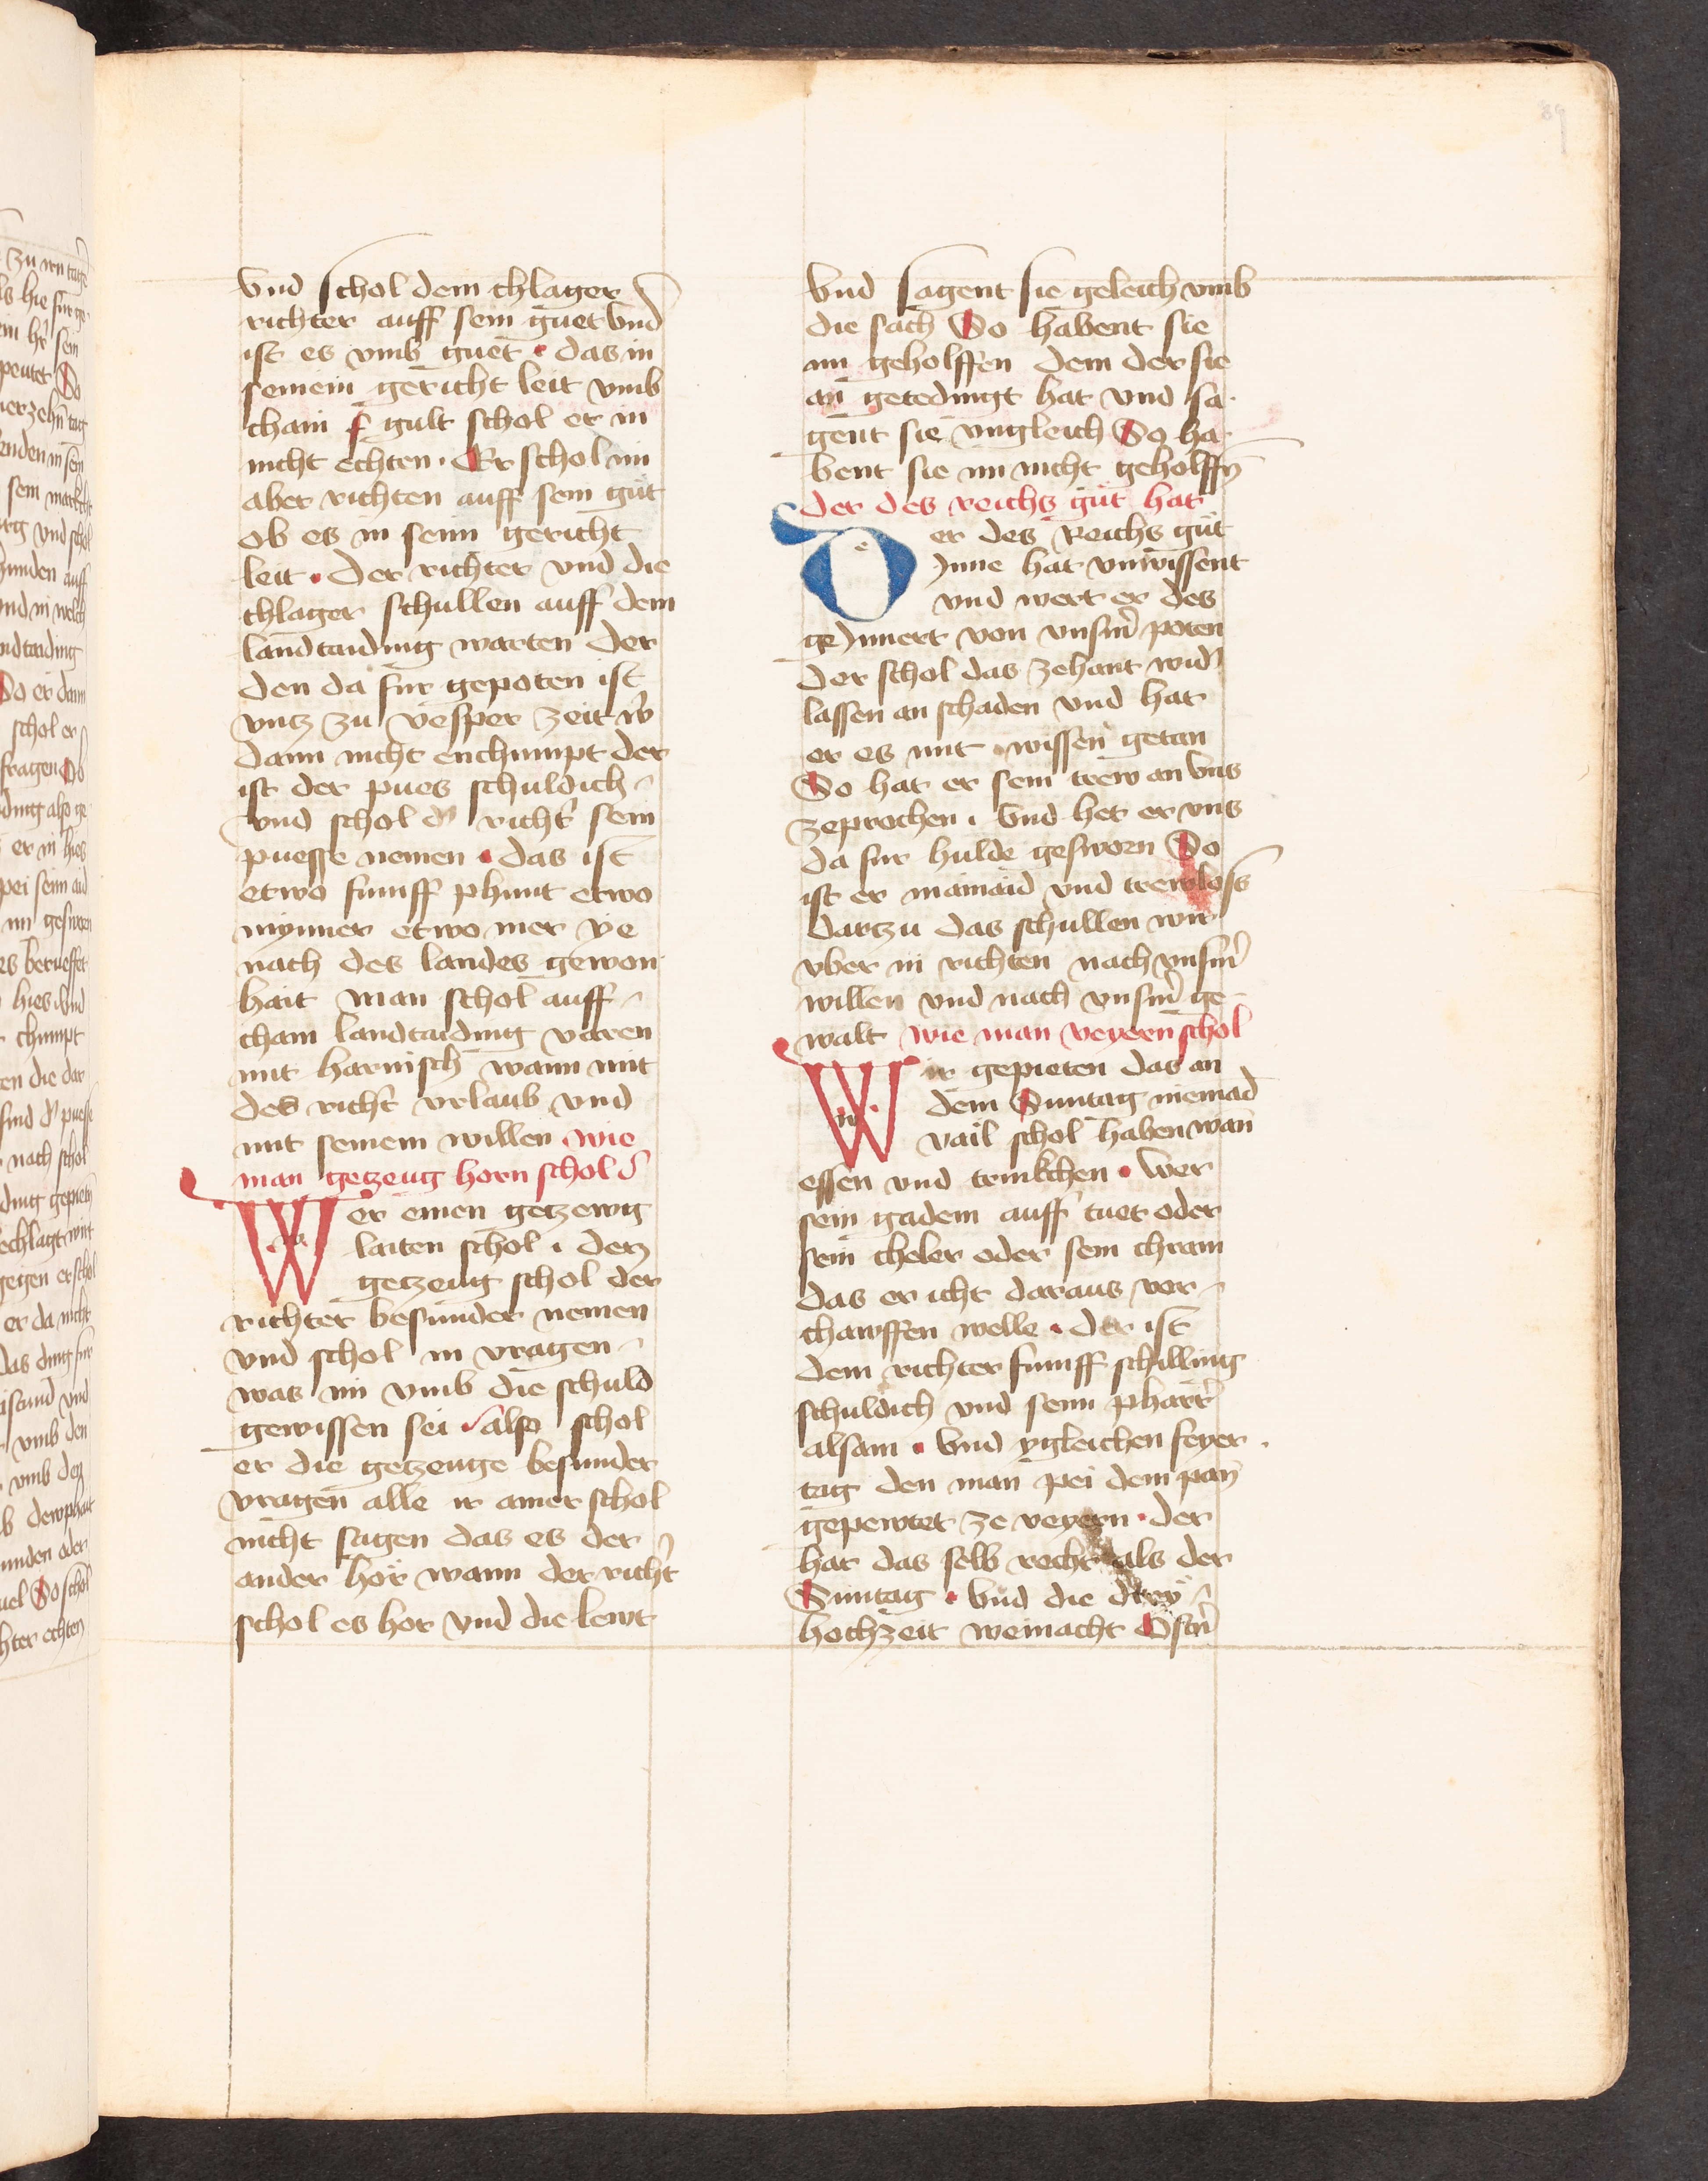 89
Vnd schol dem chlager
richter auff sein guet Vnd
ist es vmb guet · das in
seinem gericht leit vmb
chain gult schol er in
nicht echten · Er schol im
aber richten auff sein güt
ob es in seim gericht
leit · Der richter vnd die
chlager schullen auff dem
landtaiding warten der
den da fur gepoten ist
vntz zu vesper zeit w̄
dann nicht enchumpt der
ist der pues schuldich
vnd schol d̄ richt̄ sein
puesse nemen · das ist
etwo fumff phunt etwo
mynner etwo mer ye
nach des landes gewon
hait man schol auff
chain landtaiding varen
mit harnisch wann mit
des richt̄ vrlaub vnd
mit seinem willen wie
man getzeug horn schol
Wer einen getzewg
laiten schol · den
getzeug schol der
richter besunder nemen
vnd schol in vragen
was im vmb die schuld
gewissen sei also schol
er die getzeuge besunder
vragen alle ir ainer schol
nicht sagen das es der
ander hör wann der richt̄
schol es hor vnd die lewt
Vnd sagent sie geleich vmb
die sach So habent sie
im geholffen dem der sie
an getedingt hat vnd sa
gent sie vngleich So ha
bent sie im nicht geholffn̄
der des reichs güt hat
Der des Reichs güt
Inne hat vnwissent
vnd wert er des
geInnert von vnsm̄ poten
der schol das zehant wid̄
lassen an schaden vnd hat
er es mit wissen getan
So hat er sein trew an Vns
zeprochen · Vnd het er vns
da fur hulde gesworn So
ist er mainaid vnd trewloss
dartzu das schullen wir
vber in richten nach vnsm̄
willen vnd nach vnsm̄ ge
walt wie man veyern schol
Wir gepieten das an
dem Suntag niemad̄
vail schol haben wan̄
essen vnd trinkchen · Wer
sein gadem auff tuet oder
sein cheler oder sein chram
das er icht daraus ver
chawffen welle · der ist
dem richter fumff schilling
schuldich vnd seim pharr̄
alsam · Vnd ygleichen feyer
tag den man pei dem pan̄
gepewtet ze veyern · der
hat das selb recht als der
Suntag · Vnd die drey
hochzeit weinacht Ostn̄